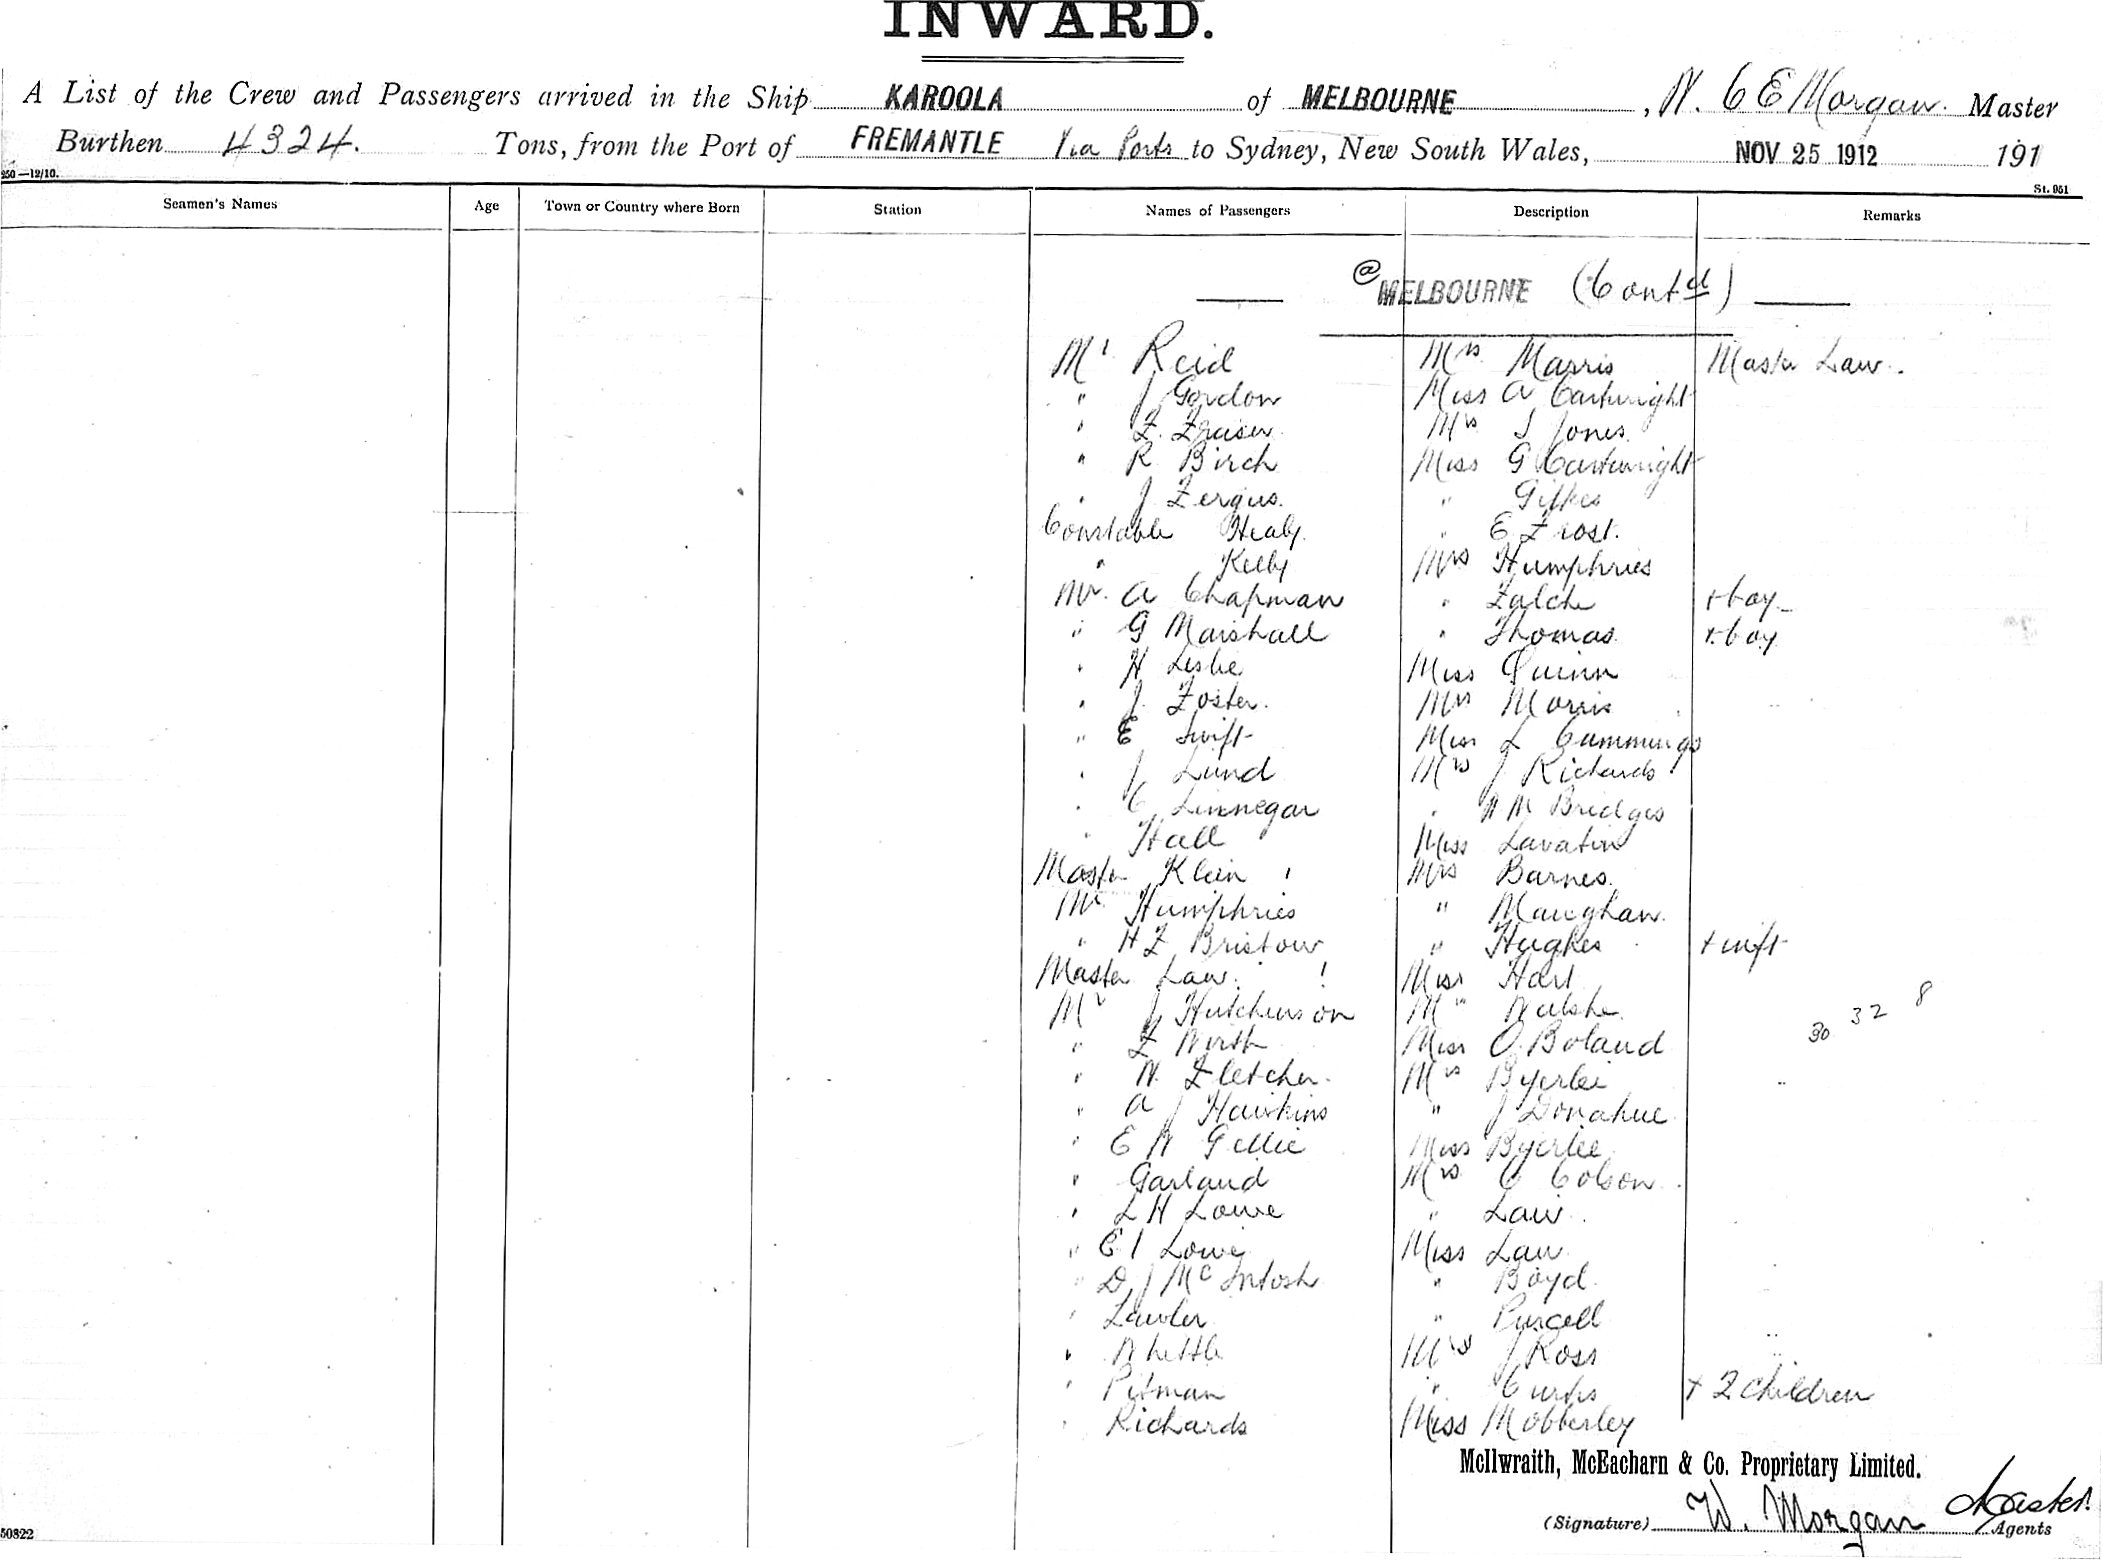 INWARD.
A List of the Crew and Passengers arrived in the Ship KAROOLA of MELBOURNE, W. C E Morgan. Master
Burthen 4324. Tons, from the Port of FREMANTLE Via Ports to Sydney, New South Wales, NOV 25 1912 191
250—12/10. St. 951
Seamen's Names Age Town or Country where Born Station Names of Passengers Description Remarks
@ MELBOURNE (Contd)
Mr Reid Mrs Marris Master Law.
" J Gordon Miss A Cartwright
" F. Fraser Mrs S Jones
" R Birch Miss G Cartwright
" J Fergus. "
Constable Healy " E Frost.
" Kelly Mrs Humphries
Mr. A Chapman " Falche + boy
" G Marshall " Thomas + boy
" H Leslie Miss Quinn
" J Foster. Mrs Morris
" E Swift Miss L Cummings
" J Lund Mrs J Richards
" C Linnegar " W M Bridges
" Hall Miss Lavatin
Master Klein Mrs Barnes.
Mr Humphries " Maughan.
" H F Bristow " Hughes + inft
Master Law. Miss Hart
Mr J Hutchinson M" Walshe.
" F Wirth Miss O Boland 30 32 8
" W. Fletcher. Mrs Byerlee
" A J Hawkins " J Donahue
" E W Gellie Miss Byerlee
" Garland Mrs C Colson.
" L H Lowe " Law.
" E I Lowe Miss Law
" D J McIntosh " Boyd
" Lawler " Purcell
" Whittle Mrs J Ross
" Pitman " Curtis + 2 Children
" Richards Miss Mobberley
McIlwraith, McEacharn & Co. Proprietary Limited.
(Signature) W. Morgan Master.
Agents
50822